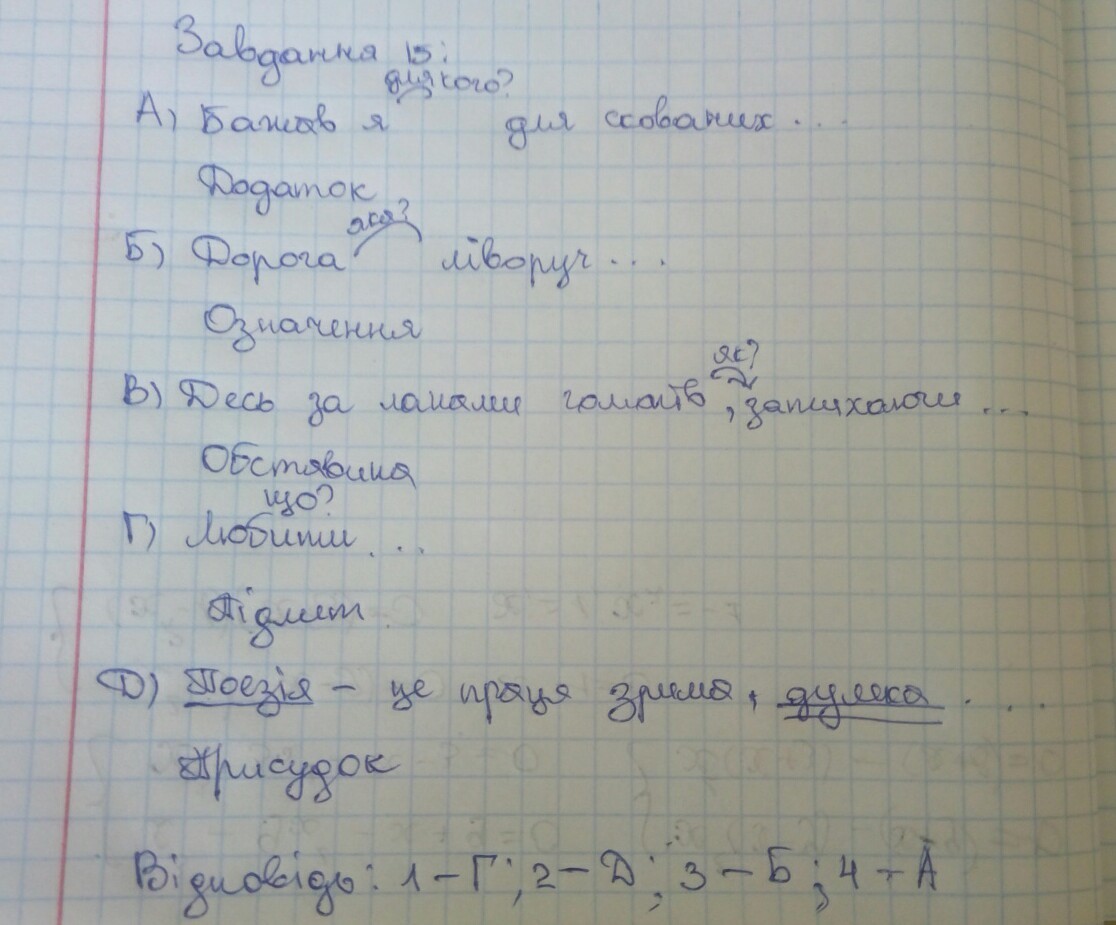 Завдання 15:
для кого?
А) Бажав я для скованих ...
Додаток
яка?
Б) Дорога ліворуч ...
Означення
як?
В) Десь за ланами гомонів, запихаючи ...
Обставина
що?
Г) Любити ...
Підмет
Д) Поезія – це праця зрима, думка ...
Присудок
Відповідь: 1 – Г; 2 – Д; 3 – Б; 4 – А